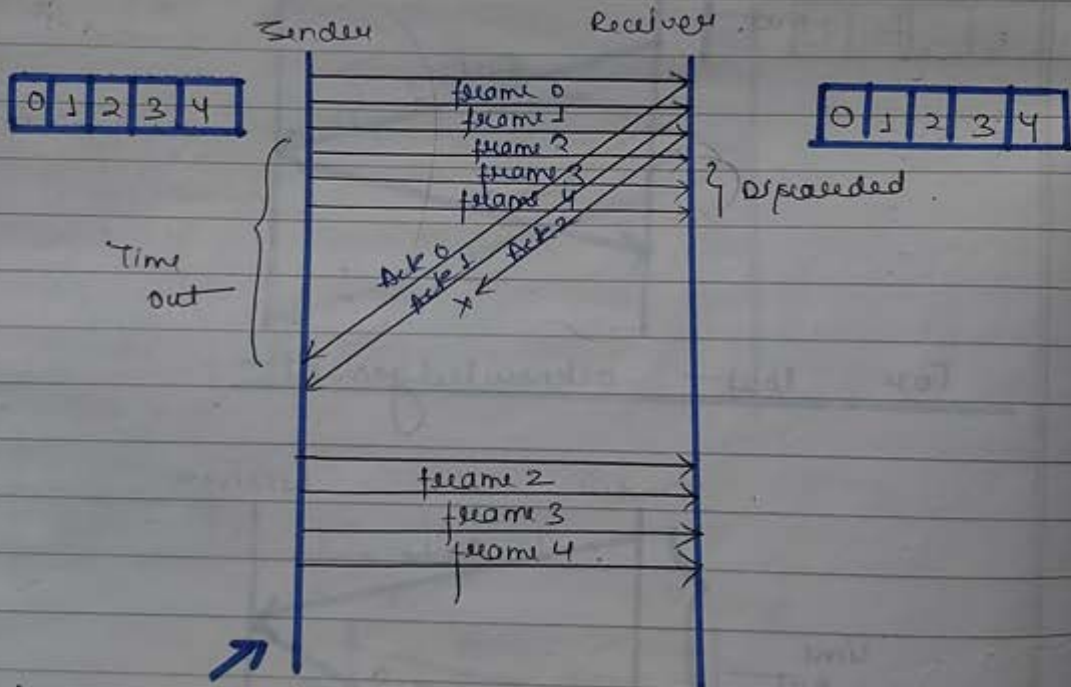 Sender Receiver
0 1 2 3 4
frame 0
frame 1
frame 2
frame 3
frame 4
0 1 2 3 4
Discarded
Time
out
Ack 0
Ack 1
Ack 2
x
frame 2
frame 3
frame 4